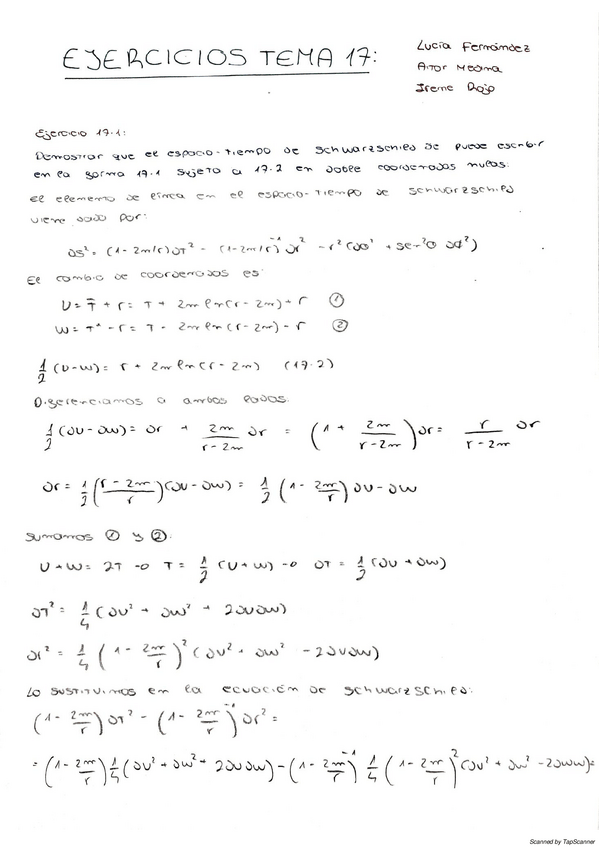 EJERCICIOS TEMA 17:
Lucía Fernández
Aitor Medina
Irene Rojo
Ejercicio 17.1:
Demostrar que el espacio-tiempo de Schwarzschild se puede escribir
en la forma 17.1 sujeto a 17.2 en doble coordenadas nulas:
El elemento de línea en el espacio-tiempo de Schwarzschild
viene dado por:
ds² = (1-2m/r)dT² - (1-2m/r)⁻¹ dr² - r²(dθ² + sen²θ dϕ²)
El cambio de coordenadas es:
v = T̄ + r = T + 2m ln(r-2m) + r ①
w = T* - r = T - 2m ln(r-2m) - r ②
1/2 (v-w) = r + 2m ln(r-2m) (17.2)
Diferenciamos a ambos lados:
1/2 (dv-dw) = dr + 2m/(r-2m) dr = (1 + 2m/(r-2m)) dr = r/(r-2m) dr
dr = 1/2 ((r-2m)/r)(dv-dw) = 1/2 (1 - 2m/r) dv-dw
Sumamos ① y ②:
v+w = 2T → T = 1/2 (v+w) → dT = 1/2 (dv+dw)
dT² = 1/4 (dv² + dw² + 2dvdw)
dr² = 1/4 (1 - 2m/r)² (dv² + dw² - 2dvdw)
Lo sustituimos en la ecuación de Schwarzschild:
(1 - 2m/r) dT² - (1 - 2m/r)⁻¹ dr² =
= (1 - 2m/r) 1/4 (dv² + dw² + 2dvdw) - (1 - 2m/r)⁻¹ 1/4 (1 - 2m/r)² (dv² + dw² - 2dvdw) =
Scanned by TapScanner